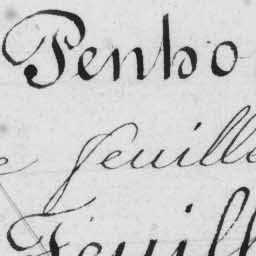 Penho
feuille
Feuill